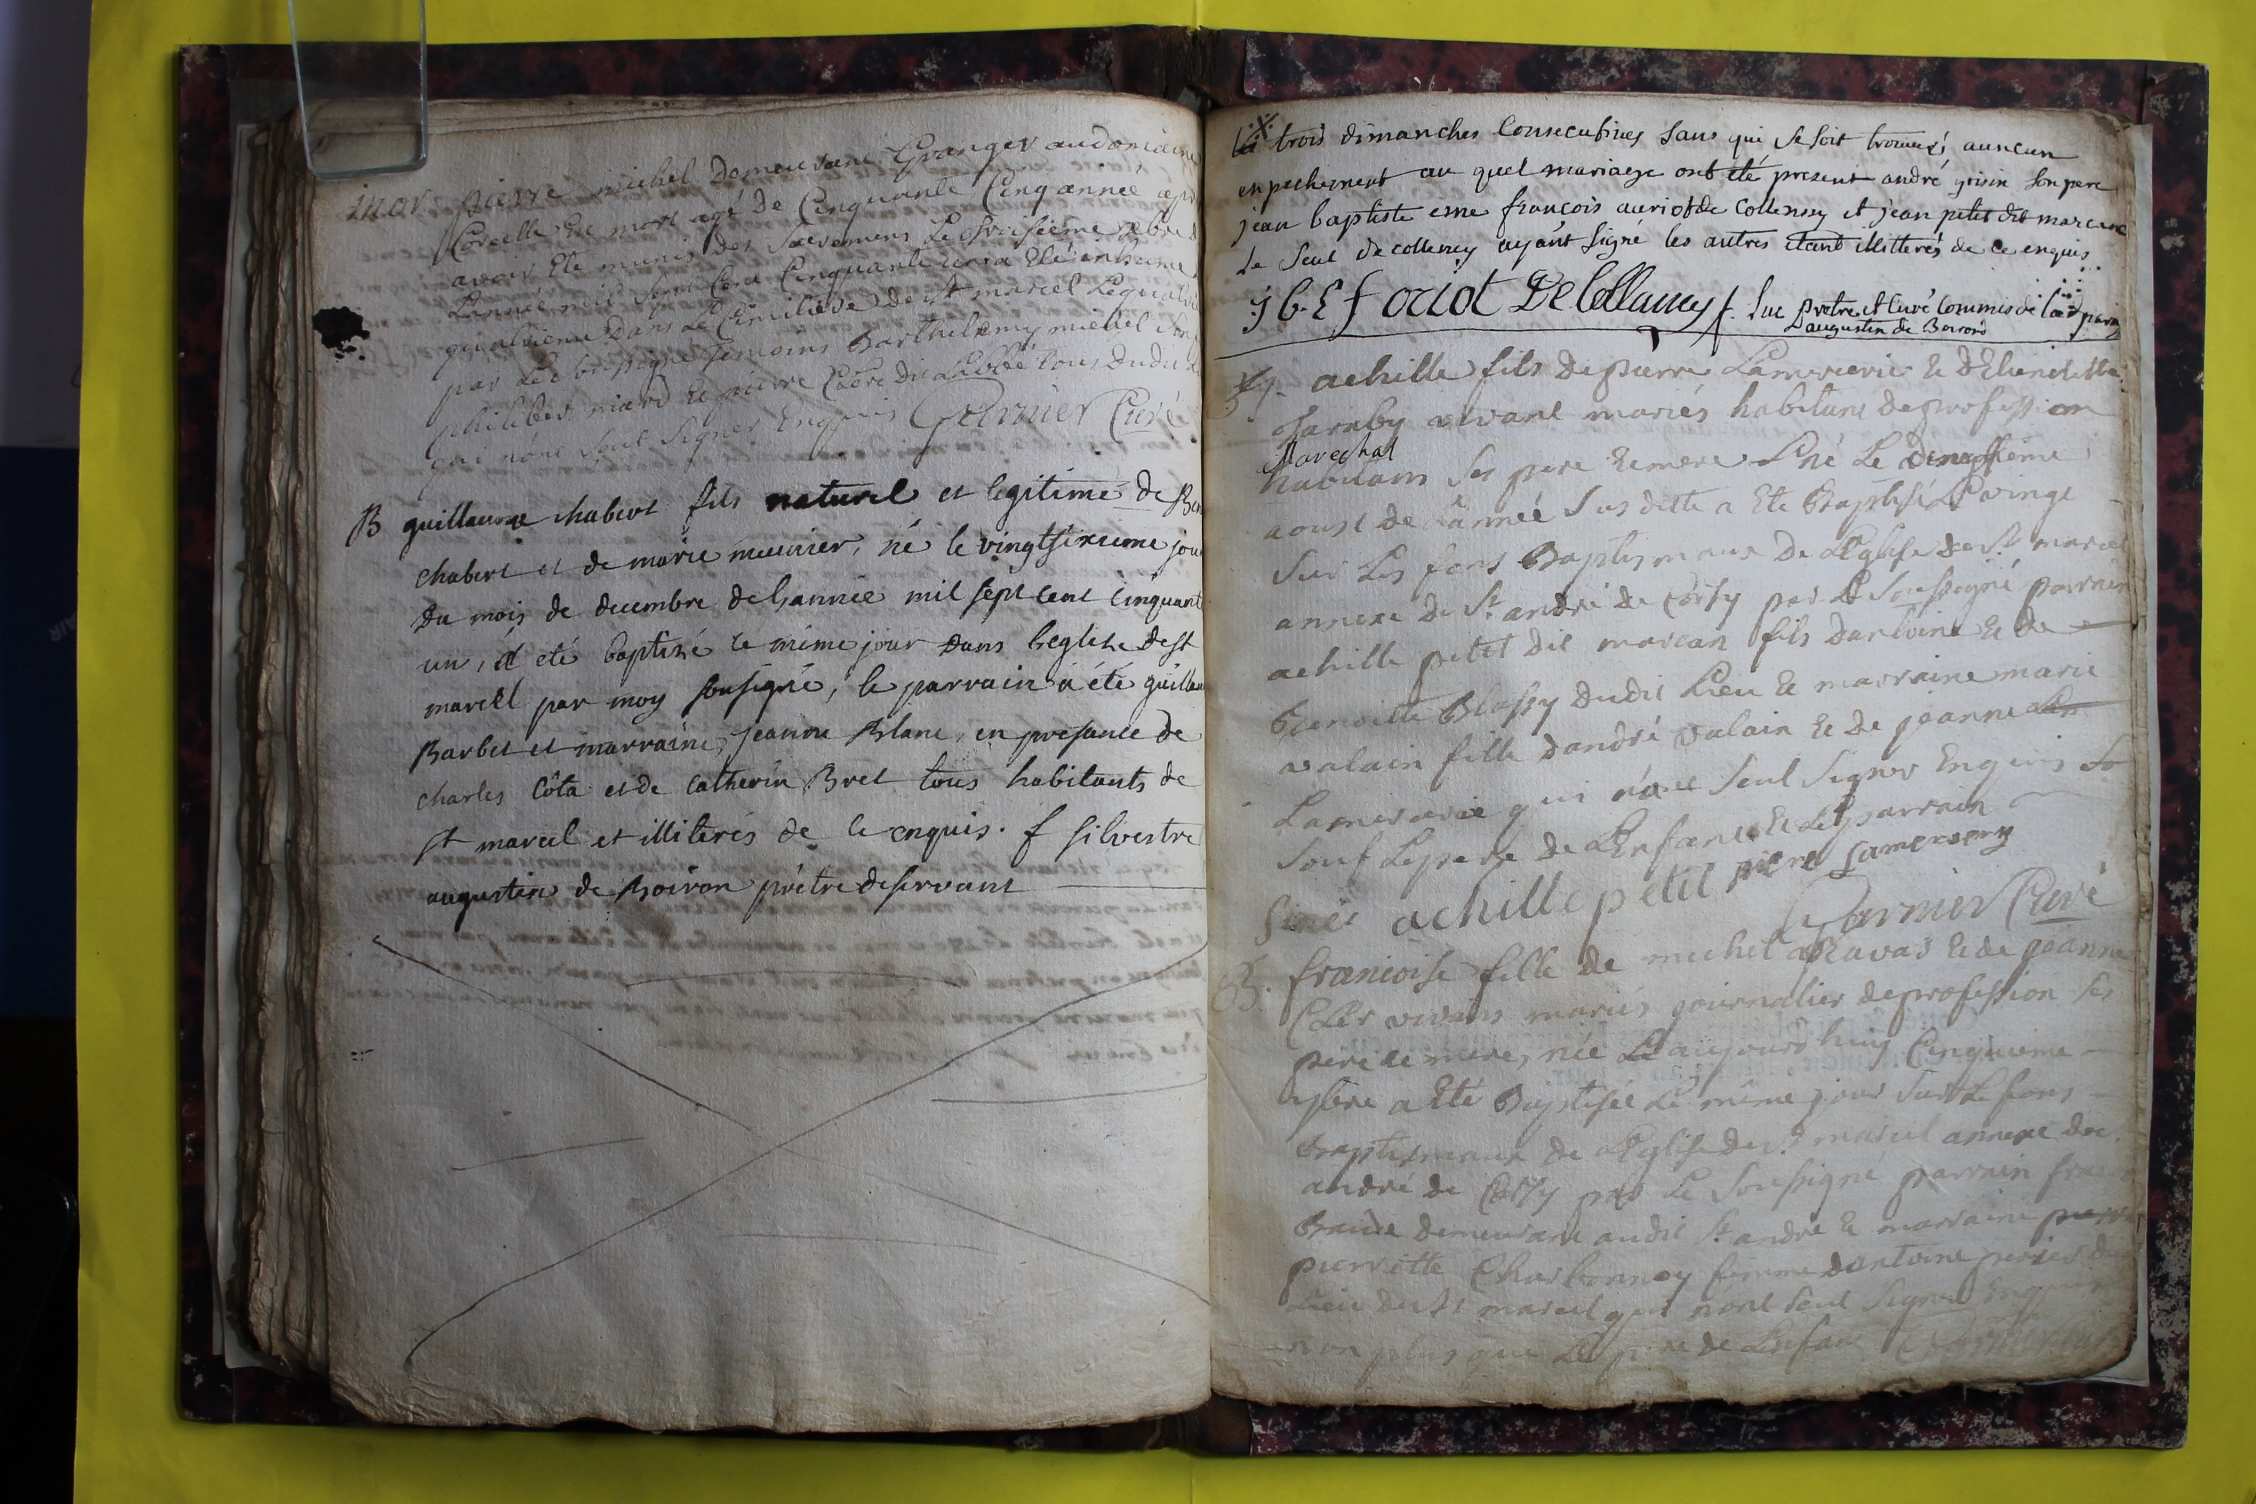 mor pierre michel demeurant Granger au domaine
Corcelle Est mort agé de Cinquante Cinq année apr
avoir Eté munis des Sacremens Le troisieme xbre d
L'année mil Sept Cent Cinquante un a Eté inhumé
quatrieme dans Le Cimitiere de St marcel Lequatri
par Le Soussigné temoins Barthelemy michel
philiber miard Et pierre dit Labbé tous dudit
qui n'ont Seut Signer Enquis Garnier Curé
B guillaume chabert fils naturel et legitime de Ben
chabert et de marie meunier, né le vingtsixieme jour
du mois de decembre de l'année mil sept cent cinquant
un, a eté baptisé le même jour dans l'eglise de st
marcel par moy sousigné, le parrain a été guillau
Barbet et marraine, jeanne Blanc, en presance de
charles Côta et de catherin Bret tous habitants de
st marcel et illiterés de ce enquis. f silvestre
augustin de Boiron prêtre deservant
trois dimanches consecutives sans qui se soit trouvés auncun
enpechement au quel mariage ont été present andré grisin son pere
jean baptiste esne françois auriot de Collenay et jean petit dit marcan
le seul de collenay ayant signé les autres etant illiterés de ce enquis
J b E f oriot De Collanay f. Luc prêtre et curé commis de lad parois
augustin de Boiron
achille fils de pierre Lamererie Et d'Ebenoitte
Jamby vivant mariés habitant de profession
Marechal
habitans Ses pere Et mere Né Le dineuffième
aoust de L'année Sus ditte a Eté Baptisé Le vingt
Sur Les fons Baptismaux De L'Eglise de St marcel
annexe de St andré de Corsy par Le Soussigné parrain
achille petit dit marcan fils d'antoine Et de
Benoitte Blassy dudit Lieu Et marraine marie
valain fille d'andré valain Et de jeanne
Lamererie qui n'ont Seut Signer Enquis
Sauf Le pere de L'Enfant Et Le parrain
Sinés achille petit piere Lamerery
Garnier Curé
B. francoise fille de michel Ravas Et de jeanne
Cler vivans mariés journalier de profession Ses
pere Et mere, née Le aujourd'huy Cinquieme
xbre a Eté Baptisée Le même jour Sur Le fons
Baptismaux de L'Eglise de St marcel annexe de
andré de Corsy par Le Soussigné parrain franc
Braide demeurant audit St andré Et marraine
pierrette Charbonnay femme d'antoine perier du
Lieu de St marcel qui n'ont Seut Signer Enquis
non plus que Le pere de L'Enfant Garnier Curé